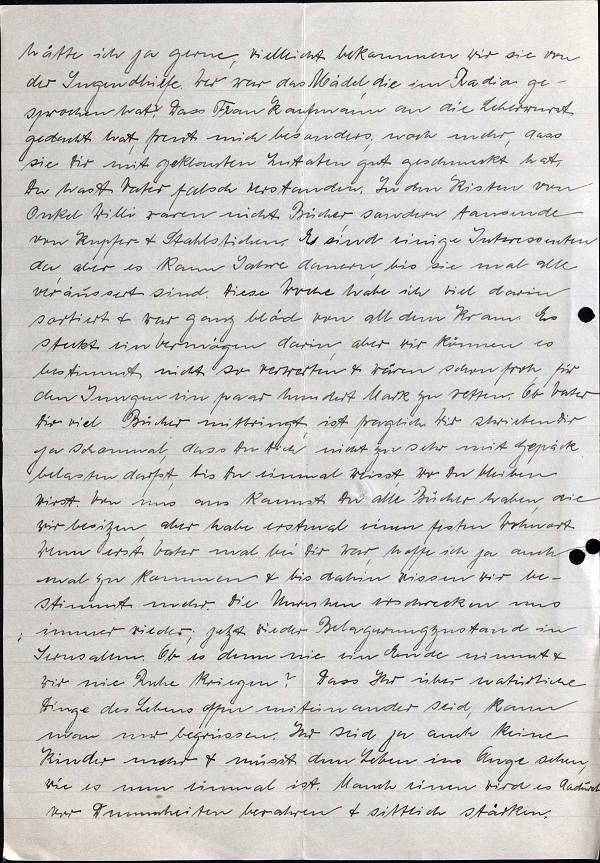 hätte ich ja gerne, vielleicht bekommen wir sie von
der Jugendhilfe. Wer war das Mädel die im Radio ge-
sprochen hat? Dass Frau Kaufmann an die Leberwurst
gedacht hat, freut mich besonders, noch mehr, dass
sie Dir mit geklauten Zutaten gut geschmeckt hat.
Du hasst Vater falsch verstanden. In den Kisten von
Onkel Willi waren nicht Bücher sondern tausende
von Kupfer- & Stahlstichen. Es sind einige Interessenten
da aber es kann Jahre dauern, bis sie mal alle
veräussert sind. Diese Woche habe ich viel darin
sortiert & war ganz blöd von all dem Kram. Es
steckt ein Vermögen darin, aber wir können es
bestimmt nicht so verwerten & wären schon froh für
den Jungen ein paar hundert Mark zu retten. Ob Vater
Dir viel Bücher mitbringt, ist fraglich. Wir schrieben Dir
ja schonmal, dass Du Dich nicht zu sehr mit Gepäck
belasten darfst, bis Du einmal weisst wo Du bleiben
wirst. Von uns aus kannst Du alle Bücher haben, die
wir besizen, aber habe erstmal einen festen Wohnort
Wenn erst Vater mal bei Dir war, hoffe ich ja auch
mal zu kommen & bis dahin wissen wir be-
stimmt mehr. Die Unruhen erschrecken uns
immer wieder, jetzt wieder Belagerungszustand in
Jerusalem. Ob es denn nie ein Ende nimmt &
wir nie Ruhe kriegen? Dass Ihr über natürliche
Dinge des Lebens offen miteinander seid, kann
man nur begrüssen. Ihr seid ja auch keine
Kinder mehr & müsst dem Leben ins Auge sehen,
wie es nun einmal ist. Manch einen wird es dadurch
vor Dummheiten bewahren & sittlich stärken.